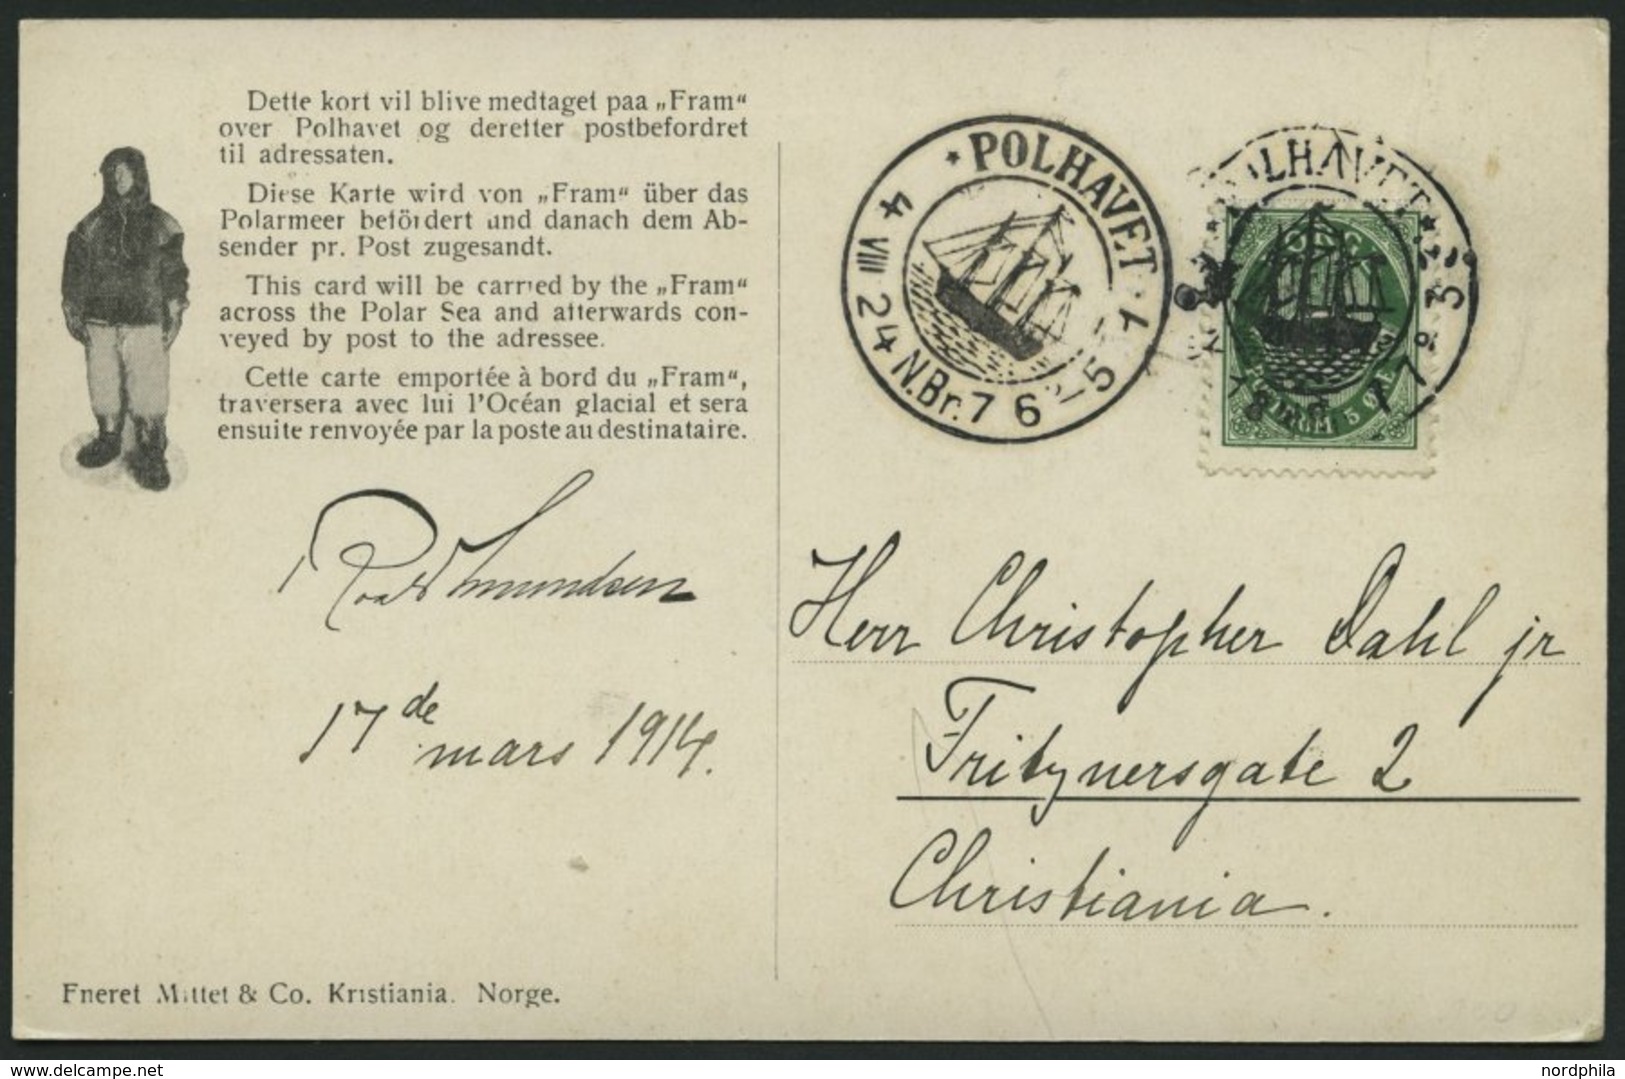 Dette kort vil blive medtaget paa „Fram“
over Polhavet og deretter postbefordret
til adressaten.
Diese Karte wird von „Fram“ über das
Polarmeer befördert und danach dem Ab-
sender pr. Post zugesandt.
This card will be carried by the „Fram“
across the Polar Sea and afterwards con-
veyed by post to the adressee.
Cette carte emportée à bord du „Fram“,
traversera avec lui l'Océan glacial et sera
ensuite renvoyée par la poste au destinataire.
Roald Amundsen
17de mars 1914.
Eneret Mittet & Co. Kristiania. Norge.
* POLHAVET
4 VIII 24 N.Br. 76
POLHAVET
5 ØRE
Herr Christopher Dahl jr
Fritznersgate 2
Christiania.
nordphila